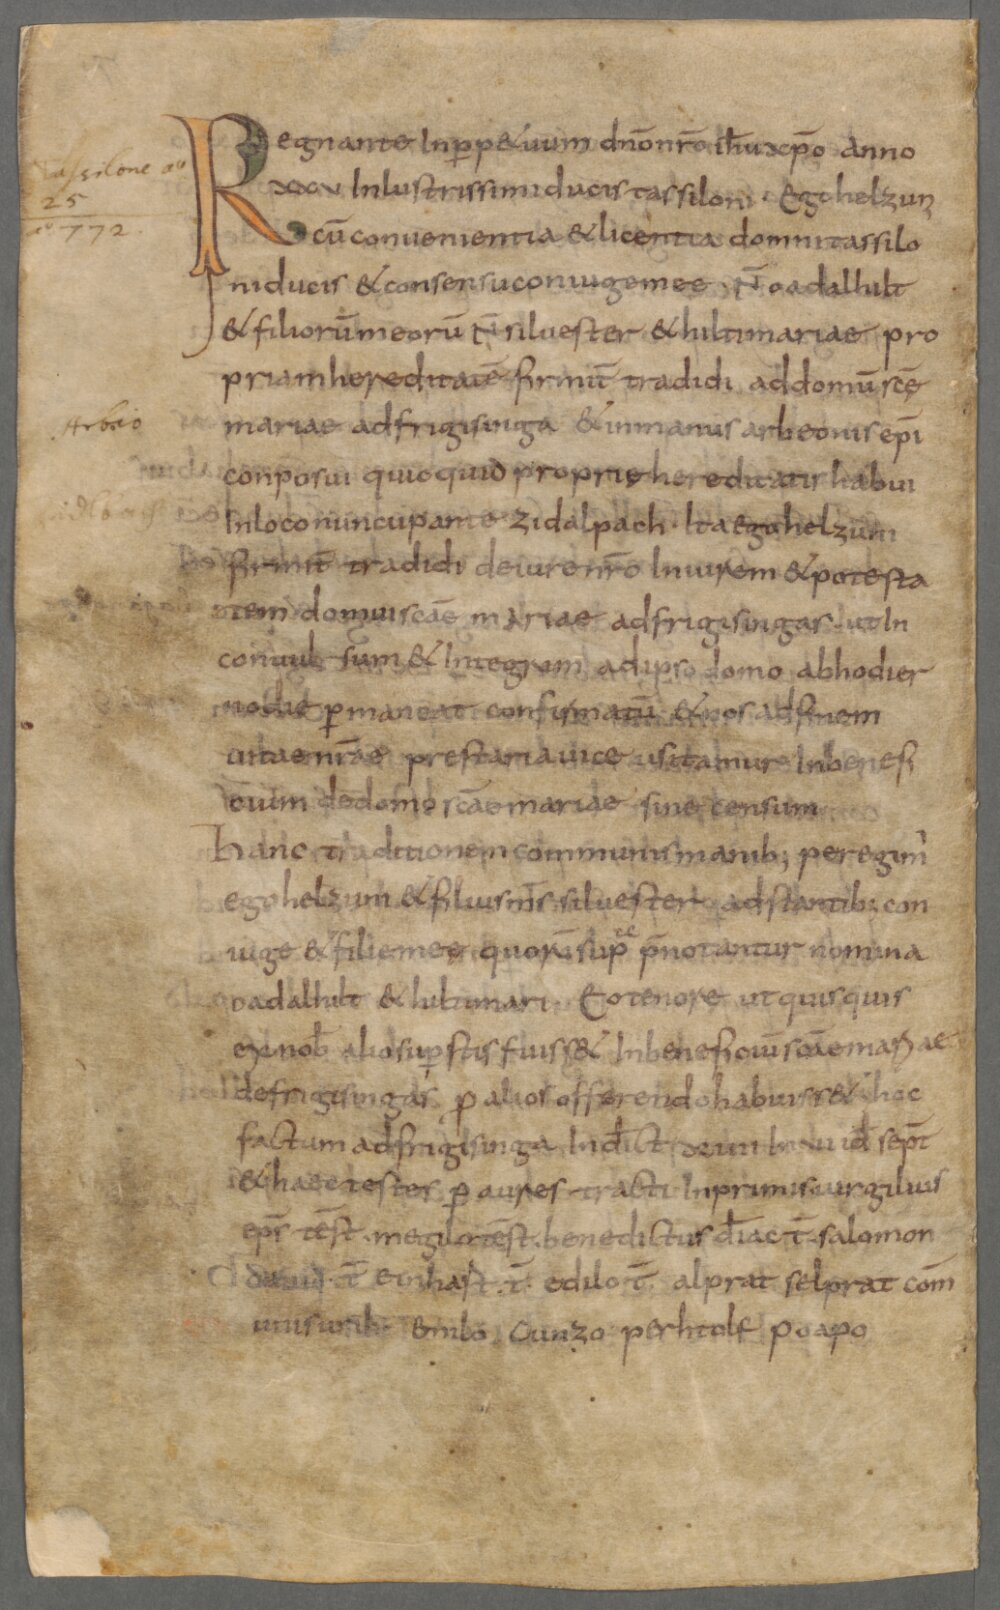 Tassilone aº
25
aº 772.
Regnante In p̲petuum dn̄o nr̄o ih̄u xp̄o anno
xxv Inlustrissimi ducis tassiloni. Ego helzuni
cū convenientia & licentia domni tassilo
ni ducis & consensu coniuge mee. N̄ oadalhilt
& filiorū meorū N̄ silvester & hiltimariae pro
priam hereditatē firmit̄ tradidi ad domū sc̄e
Arbeo
mariae ad frigisinga & in manus arbeonis ep̄i
conposui quicquid proprie hereditatis habui
In loco nuncupante zidalpach. Ita ego helzuni
firmit̄ tradidi de iure nr̄o In iurem & potesta
tem domui sc̄ae mariae ad frigisingas. ut In
convulsum & Integrum ad ipso domo ab hodier
no die p̲maneat confirmatū & nos ad finem
vitae nr̄ae prestaria vice usitamur In benefi
cium de domo sc̄ae mariae sine censum
hanc traditionem communis manib; peregim̄
ego helzuni & filius m̄s silvester adstantib; con
iuge & filie mee quorū sup̲ p̄notantur nomina
oadalhilt & hiltimari. Eo tenore ut quisquis
ex nob̄ alio sup̲stis fuiss& In beneficiū sc̄ae mariae
de frigisingas p̲ alios offerendo habuiss& hoc
factum ad frigisinga Ind̄ict id̄ sept̄
& haec testes p̲ aures tracti In primis virgilius
ep̄s tēst. megilo tēst. benedictus diac̄ t̄. salomon
david t̄ einhart t̄. edilo t̄. alprat selprat com̄
emilo cunzo perhtolf poapo